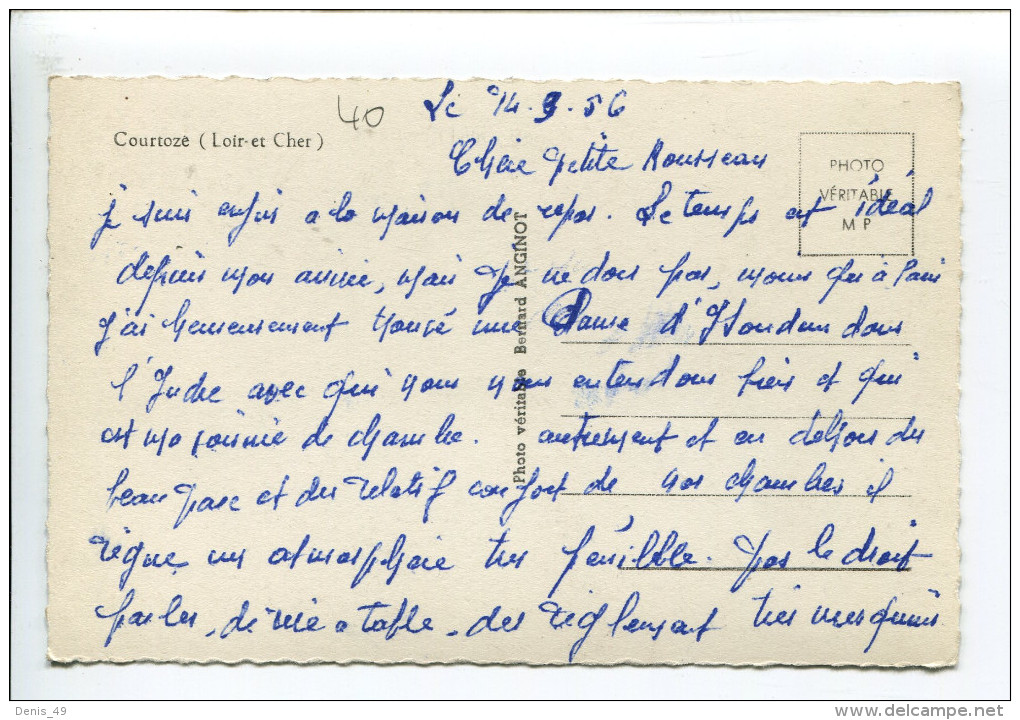 40
Le 14.9.56
Courtozé (Loir-et Cher)
PHOTO
VÉRITABLE
M P
Chère petite Rousseau
je suis enfin a la maison de repos. Le temps est idéal
depuis mon arrivée, mais je ne dors pas, moins qu'à Paris
j'ai heureusement trouvé une Dame d'Issoudun dans
l'Indre avec qui nous nous entendons bien et qui
est ma voisine de chambre. autrement et en dehors du
beau parc et du relatif confort de nos chambres il
règne une atmosphère très pénible. pas le droit
parler, de rire a table, des règlement très mesquins
Photo véritable Bernard ANGINOT
Denis_49
www.delcampe.net